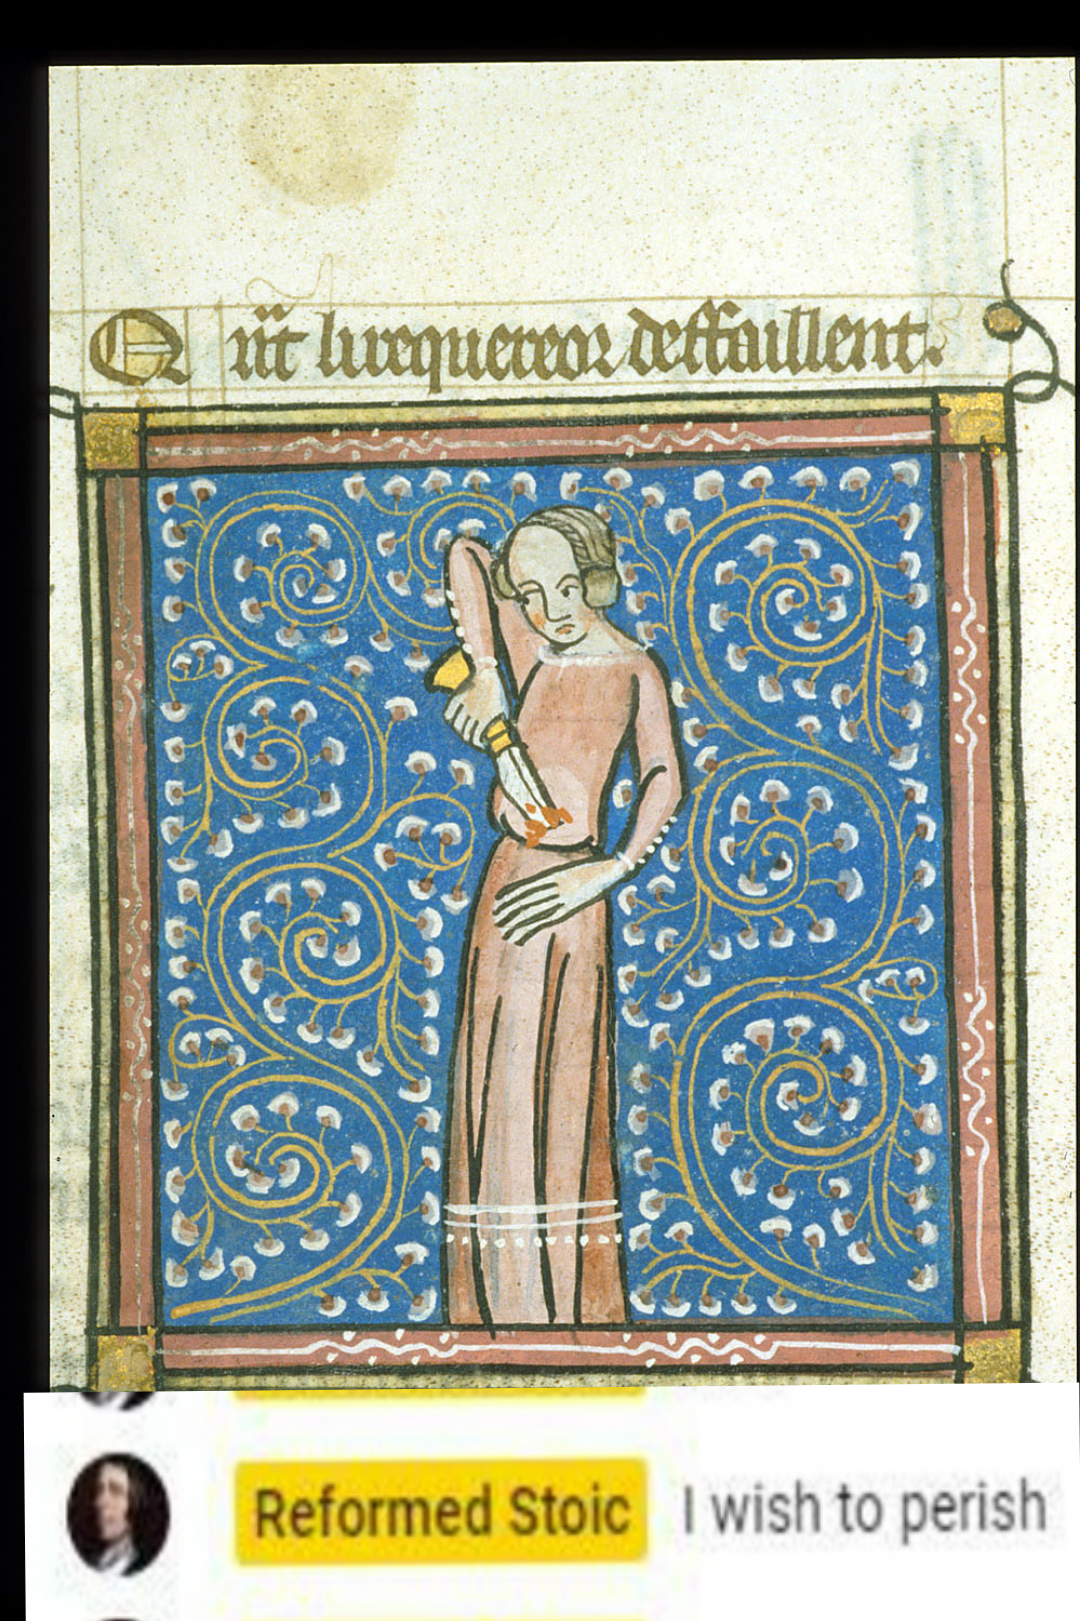 Qūt lurequereor deffaillent.
Reformed Stoic I wish to perish